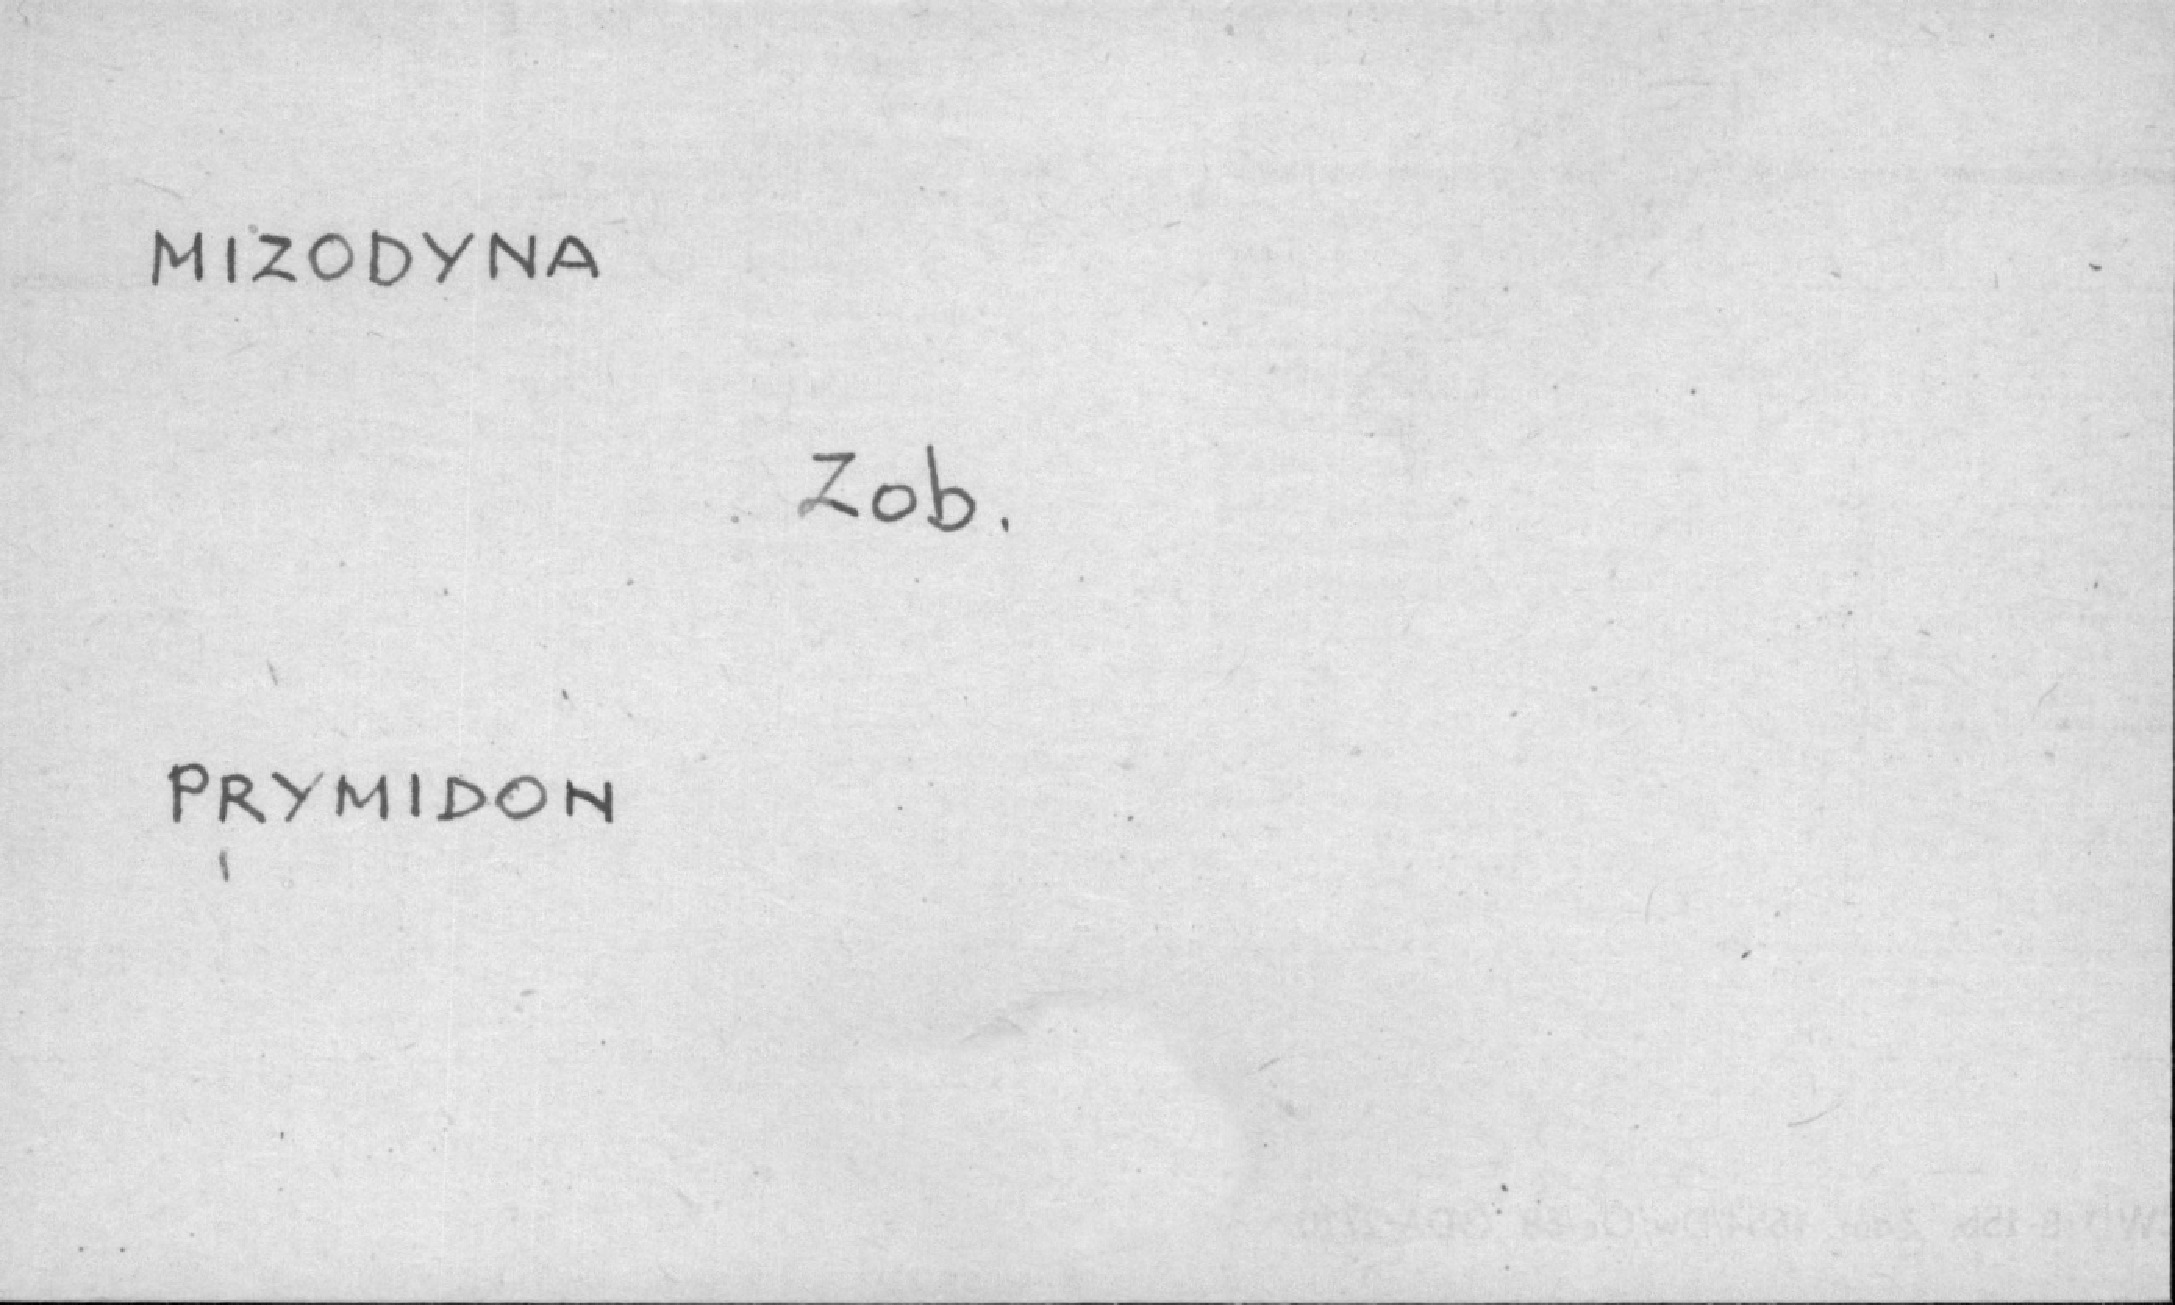 MIZODYNA
Zob.
PRYMIDON